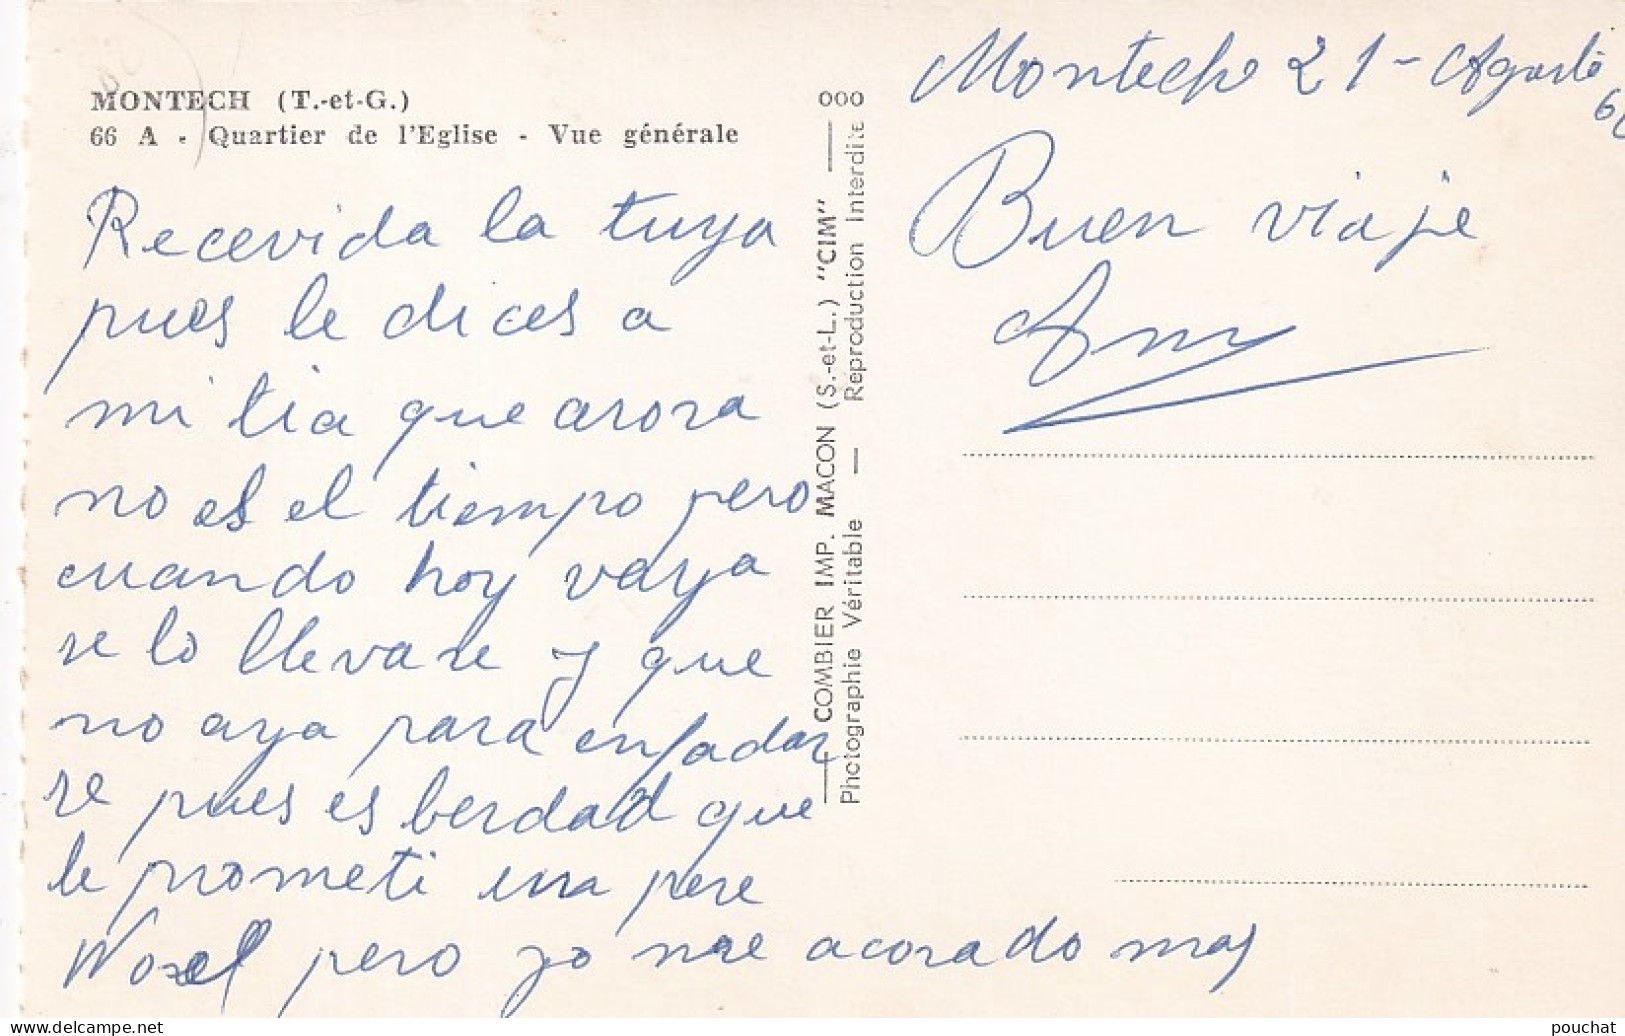 MONTECH (T.-et-G.)
66 A - Quartier de l'Eglise - Vue générale
Recevida la tuya
pues le dices a
mi tia que arora
no es el tiempo pero
cuando hoy vaya
se lo llevare y que
no aya para enfadar
se pues es berdad que
le prometi una
pero yo me acorado mas
COMBIER IMP. MACON (S.-et-L.) "CIM" — 000
Photographie Véritable — Reproduction Interdite
Montech 21-Agosto
Buen viaje
pouchat